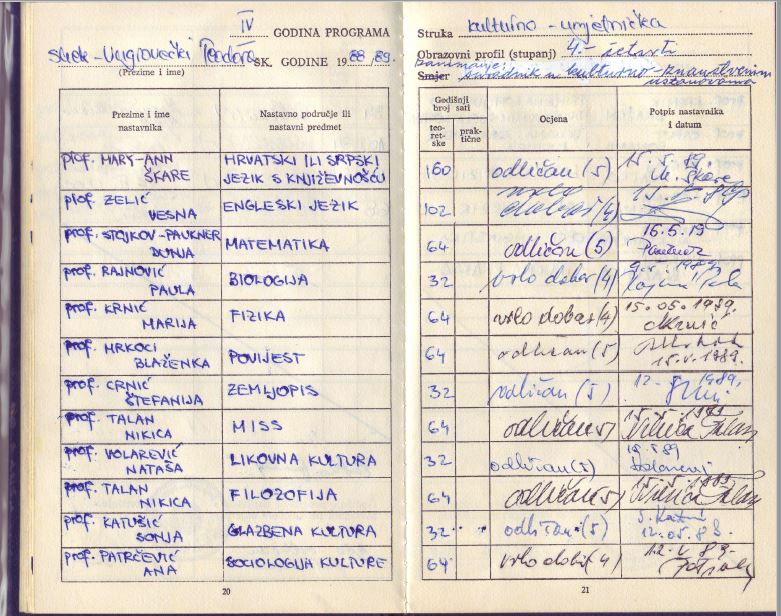 IV GODINA PROGRAMA
Teodora SK. GODINE 1988/89.
(Prezime i ime)
Prezime i ime nastavnika
Nastavno područje ili nastavni predmet
prof. MARY-ANN ŠKARE
HRVATSKI ILI SRPSKI JEZIK S KNJIŽEVNOŠĆU
prof. ZELIĆ VESNA
ENGLESKI JEZIK
prof. STOJKOV-PAUKNER DUNJA
MATEMATIKA
prof. RAJNOVIĆ PAULA
BIOLOGIJA
prof. KRNIĆ MARIJA
FIZIKA
prof. MRKOCI BLAŽENKA
POVIJEST
prof. CRNIĆ ŠTEFANIJA
ZEMLJOPIS
prof. TALAN NIKICA
MISS
prof. VOLAREVIĆ NATAŠA
LIKOVNA KULTURA
prof. TALAN NIKICA
FILOZOFIJA
prof. KATUŠIĆ SONJA
GLAZBENA KULTURA
prof. PATRČEVIĆ ANA
SOCIOLOGIJA KULTURE
20
Struka kulturno-umjetnička
Obrazovni profil (stupanj) 4.- četvrti
zanimanje:
Smjer suradnik u kulturno-znanstvenim
ustanovama
Godišnji broj sati
teoretske
praktične
Ocjena
Potpis nastavnika i datum
160 odličan (5) 15. 5. 89. M. Škare
102 vrlo dobar (4)
64 odličan (5) 16.5.89
32 vrlo dobar (4)
64 vrlo dobar (4) 15.05.1989.
64 odličan (5) 15.V.1989.
32 odličan (5)
64 odličan (5) 15.5.1989 Nikica Talan
32 odličan (5)
64 odličan (5) 15.5.1989. Nikica Talan
32 odličan (5) 12.05.89.
64 vrlo dobar (4) 12.V.89.
21